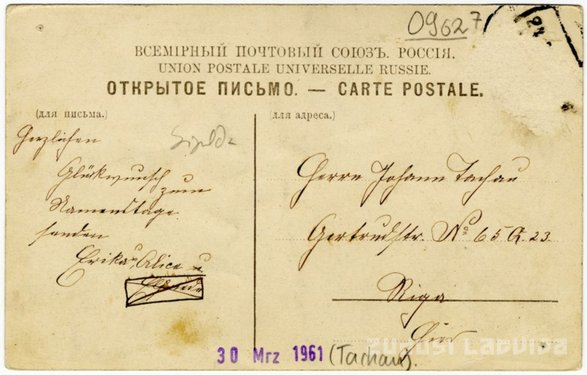 09627
24
ВСЕМІРНЫЙ ПОЧТОВЫЙ СОЮЗЪ. РОССІЯ.
UNION POSTALE UNIVERSELLE RUSSIE.
ОТКРЫТОЕ ПИСЬМО. — CARTE POSTALE.
(для письма.)
Herzlichen
Glückwunsch
zum
Namenstage
senden
Erika, Alice u
(для адреса.)
Herrn Johann Tachau
Gertrudstr. № 65 Q. 23
Riga
Hier
30 Mrz 1961
(Tachau).
ZUDUSI LATVIJA